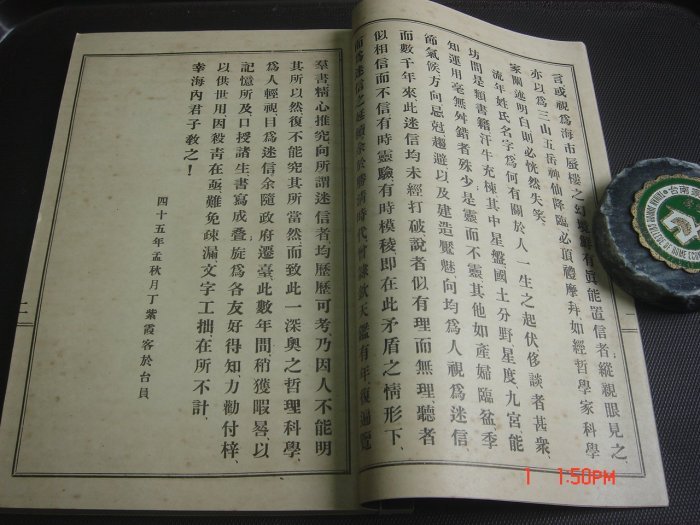 言或視爲海市蜃樓之幻境鮮有眞能置信者、縱親眼見之、
亦以爲三山五岳神仙降臨必頂禮摩拜、如經哲學家科學
家闡述明白則必恍然失笑、
流年姓氏名字爲何有關於人一生之起伏侈談者甚衆、
坊間是類書籍汗牛充棟其中星盤國土分野、星度九宮能
知運用毫無舛錯者殊少是靈而不靈其他如產婦臨盆季
節氣候方向忌尅趨避以及建造魘魅、向均爲人視爲迷信
而數千年來此迷信均未經打破說者似有理而無理聽者
似相信而不信有時靈驗有時模稜、即在此矛盾之情形下、
而爲迷信之延續余於勝淸時代曾隸欽天監有年、復遍覽
羣書精心推究向所謂迷信者、均歷歷可考乃因人不能明
其所以然、復不能究其所當然、而致此一深奧之哲理科學、
爲人輕視目爲迷信余隨政府遷臺、此數年間、稍獲暇晷、以
記憶所及口授諸生書寫成叠旋爲各友好得知、力勸付梓、
以供世用、因殺靑在亟、難免疎漏、文字工拙、在所不計、
幸海內君子敎之！
四十五年孟秋月丁紫霞客於台員
二
台南
1 1:50PM